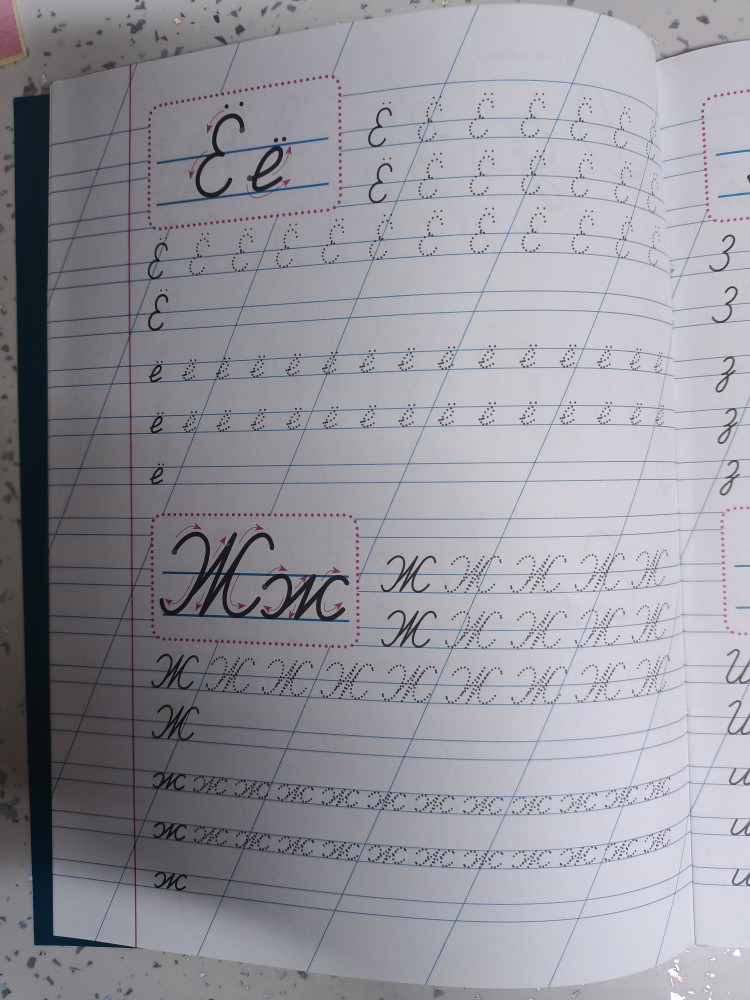 Ё ё
Ё Ё Ё Ё Ё Ё Ё
Ё Ё Ё Ё Ё Ё Ё
Ё Ё Ё Ё Ё Ё Ё Ё Ё Ё Ё Ё
Ё
ё ё ё ё ё ё ё ё ё ё ё ё ё ё ё
ё ё ё ё ё ё ё ё ё ё ё ё ё ё ё
ё
Ж ж
Ж Ж Ж Ж Ж
Ж Ж Ж Ж Ж
Ж Ж Ж Ж Ж Ж Ж Ж Ж
Ж
ж ж ж ж ж ж ж ж ж ж ж ж
ж ж ж ж ж ж ж ж ж ж ж ж
ж
З
З
з
з
з